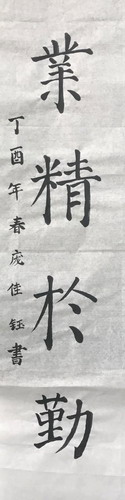 業精於勤
丁酉年春庞佳钰書